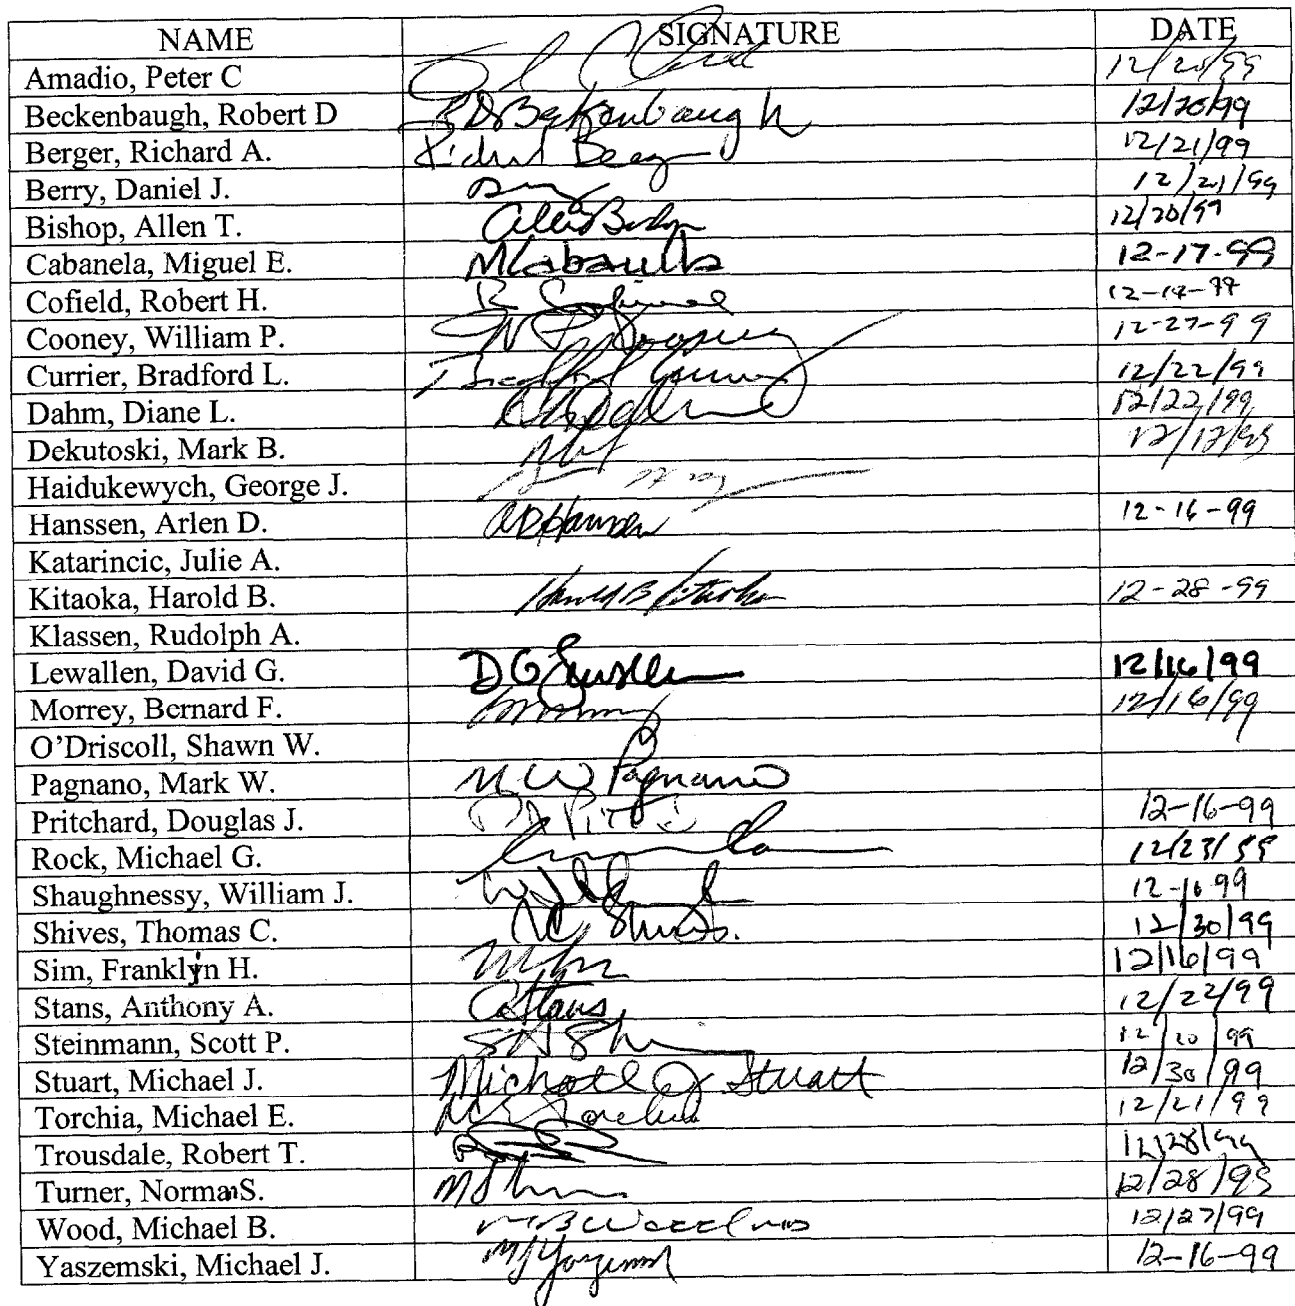 NAME SIGNATURE DATE
Amadio, Peter C 12/20/99
Beckenbaugh, Robert D RD Beckenbaugh 12/20/99
Berger, Richard A. Richard Berger 12/21/99
Berry, Daniel J. 12/21/99
Bishop, Allen T. Allen Bishop 12/20/99
Cabanela, Miguel E. MCabanela 12-17-99
Cofield, Robert H. R Cofield
Cooney, William P. W P Cooney 12-27-99
Currier, Bradford L. Bradford Currier 12/22/99
Dahm, Diane L. 12/22/99
Dekutoski, Mark B.
Haidukewych, George J.
Hanssen, Arlen D. ADHanssen 12-16-99
Katarincic, Julie A.
Kitaoka, Harold B. Harold B Kitaoka 12-28-99
Klassen, Rudolph A.
Lewallen, David G. DG Lewallen 12/16/99
Morrey, Bernard F. 12/16/99
O'Driscoll, Shawn W.
Pagnano, Mark W. M W Pagnano
Pritchard, Douglas J. 12-16-99
Rock, Michael G. 12/23/99
Shaughnessy, William J. 12-16 99
Shives, Thomas C. TC Shives. 12/30/99
Sim, Franklin H. 12/16/99
Stans, Anthony A. AStans 12/22/99
Steinmann, Scott P. 12/20/99
Stuart, Michael J. Michael J Stuart 12/30/99
Torchia, Michael E. ME Torchia 12/21/99
Trousdale, Robert T. 12/28/99
Turner, Norman S. 12/28/99
Wood, Michael B. MB Wood MD 12/27/99
Yaszemski, Michael J. MJ Yaszemski 12-16-99